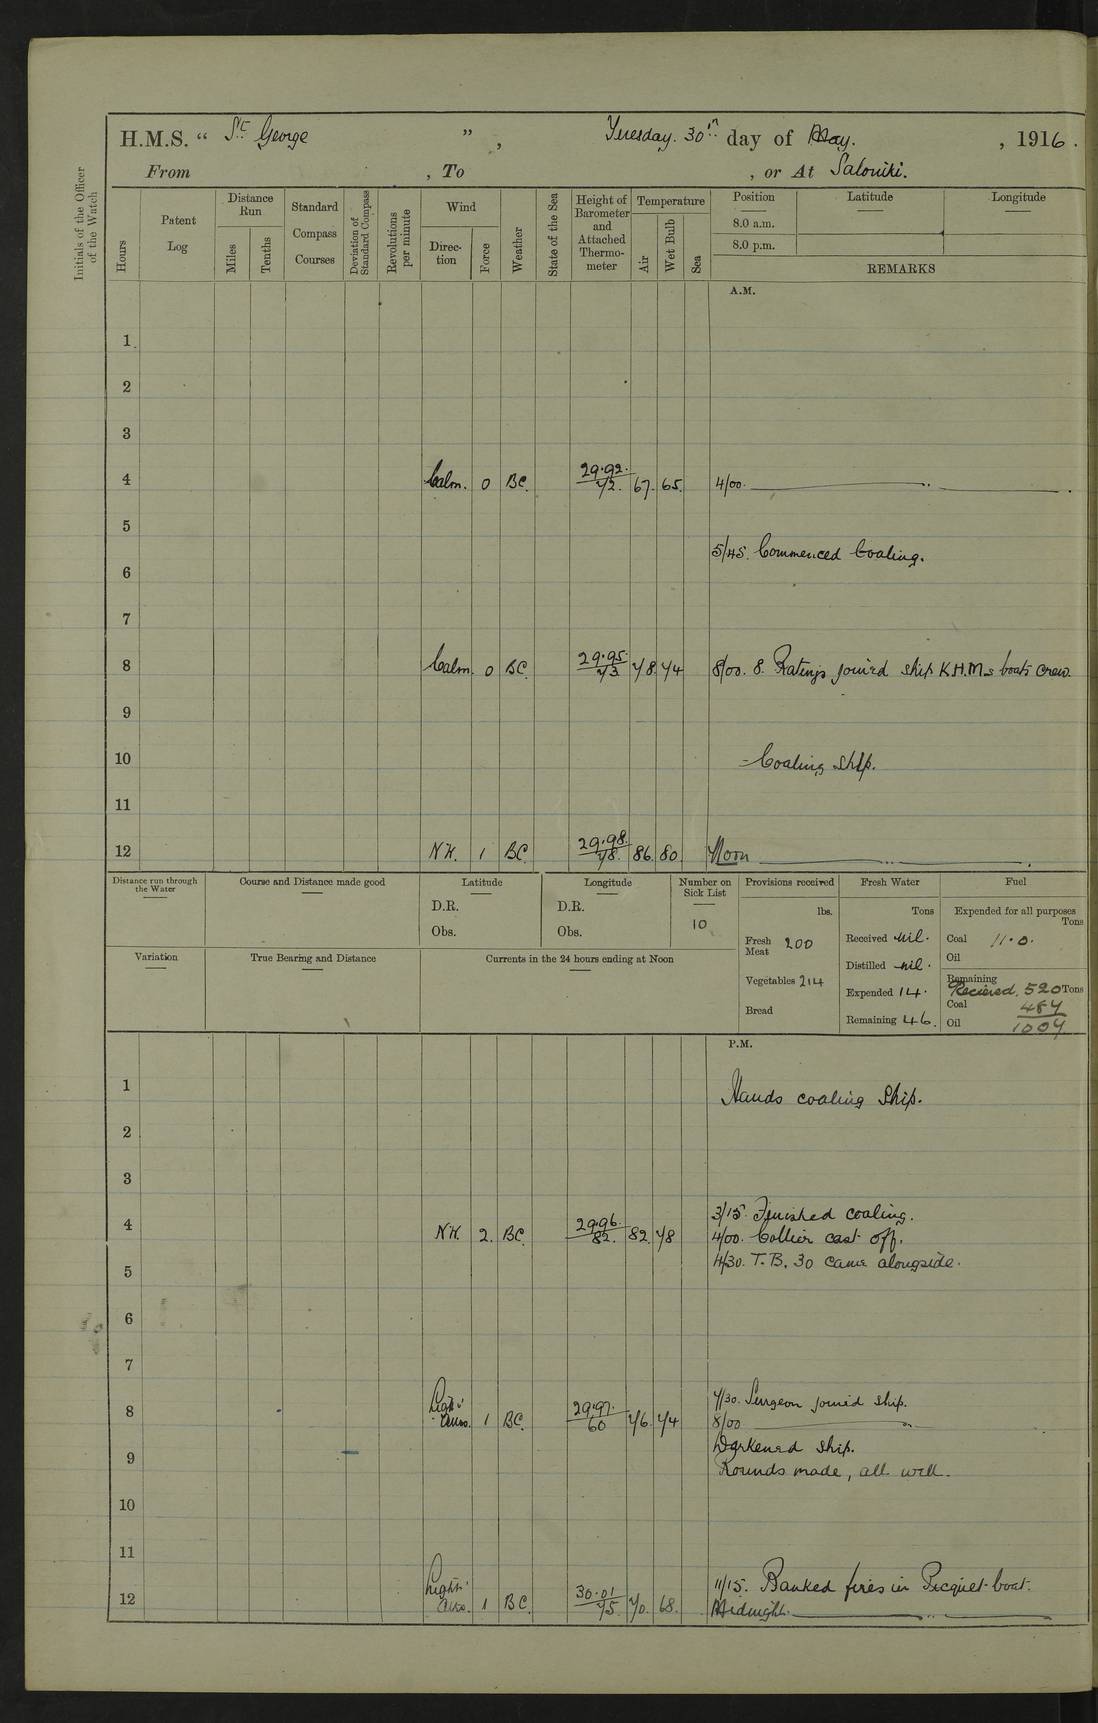 H.M.S. " St. George ", Tuesday. 30th day of May. , 1916.
From , To , or At Saloniki.
Initials of the Officer of the Watch
Hours Patent Log Distance Run Miles Tenths Standard Compass Courses Deviation of Standard Compass Revolutions per minute Wind Direc-tion Force Weather State of the Sea Height of Barometer and Attached Thermo-meter Temperature Air Wet Bulb Sea
Position Latitude Longitude
8.0 a.m.
8.0 p.m.
REMARKS
A.M.
1
2
3
4 Calm. 0 BC. 29.92. 72. 67. 65. 4/00.
5
5/45. Commenced Coaling.
6
7
8 Calm. 0 BC. 29.95. 73. 78. 74 8/00. 8. Ratings joined ship K.H.M.s boats crew.
9
10 - Coaling Ship.
11
12 NW. 1 BC. 29.98. 78. 86. 80 Noon
Distance run through the Water
Course and Distance made good
Latitude
D.R.
Obs.
Longitude
D.R.
Obs.
Number on Sick List
10
Provisions received
lbs.
Fresh Meat 200
Vegetables 214
Bread
Fresh Water
Tons
Received nil.
Distilled nil.
Expended 14.
Remaining 46.
Fuel
Expended for all purposes
Tons
Coal 11.0.
Oil
Remaining
Recieved. 520 Tons
Coal 487
Oil 1007
Variation
True Bearing and Distance
Currents in the 24 hours ending at Noon
P.M.
1 Hands coaling Ship.
2
3
3/15. Finished coaling.
4 NW. 2. BC. 29.96. 82. 82. 78 4/00. Collier cast off.
4/30. T.B. 30 came alongside.
5
6
7
7/30. Surgeon joined ship.
8 Light Airs. 1 BC. 29.97. 60 76. 74 8/00
Darkened ship.
9 Rounds made, all well.
10
11
11/15. Banked fires in Picquet-boat.
12 Light Airs. 1 BC. 30.01 75. 70. 68. Midnight.